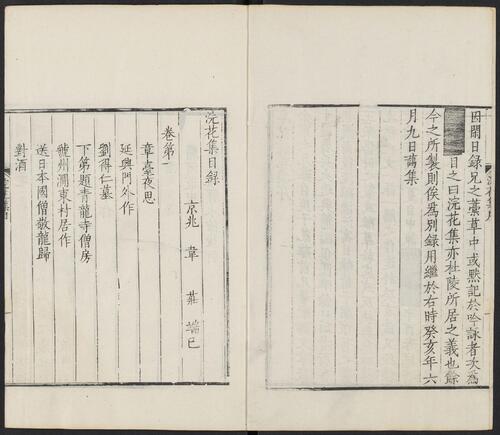 因閑日録兄之藁草中或黙記於吟詠者次為
目之曰浣花集亦杜陵所居之義也餘
今之所製則俟為別録用繼於右時癸亥年六
月九日藹集
浣花集目録
京兆韋莊端已
卷第一
章臺夜思
延興門外作
劉得仁墓
下第題青龍寺僧房
虢州澗東村居作
送日本國僧敬龍歸
對酒